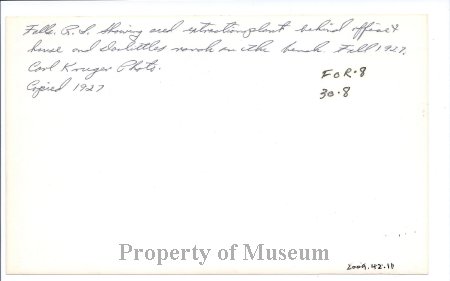 Falls. R.S. showing seed extraction plant behind office &
house and Doolittles ranch on the bench. Fall 1927.
Carl Krueger Photo.
Copied 1927
FOR.8
30.8
Property of Museum
2009.42.11